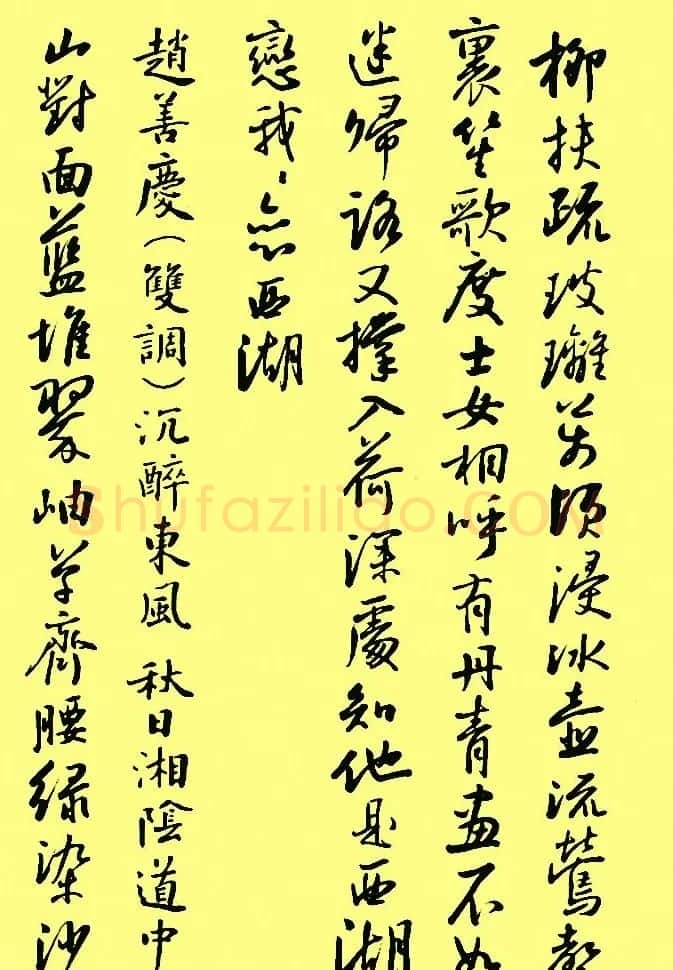 柳扶疏玻璃萬頃浸冰壺流鶯聲
裏笙歌度士女相呼有丹青畫不如
迷歸路又撑入荷深處知他是西湖
戀我⺀戀西湖
趙善慶（雙調）沉醉東風 秋日湘陰道中
山對面藍堆翠岫草齊腰綠染沙
Shufaziliao.COM